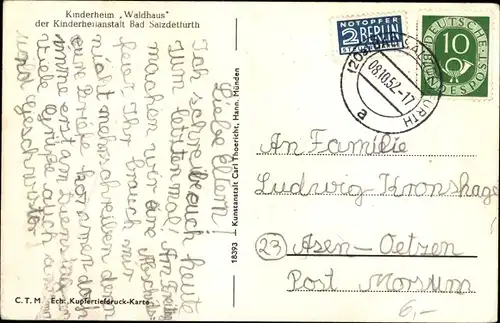 Kinderheim „Waldhaus"
der Kinderheilanstalt Bad Salzdetfurth
Liebe Eltern!
Ich schreibe euch heute
zum letzten mal! Am Freitag
machen wir die Abschieds-
feier! Ihr brauch mir
nicht mehr schreiben denn
eure Briefe kommen doch
immer erst am Dienstag
Viele Grüße auch an
die Geschwister
18393 — Kunstanstalt Carl Thoericht, Hann. Münden
C. T. M. Echt „Kupfertiefdruck-Karte
NOTOPFER
2 BERLIN
STEUERMARKE
DEUTSCHE
BUNDESPOST
10
08.10.52.-17
a
An Familie
Ludwig Kronshage
23 Asen-Oetzen
Post Morsum
6,-